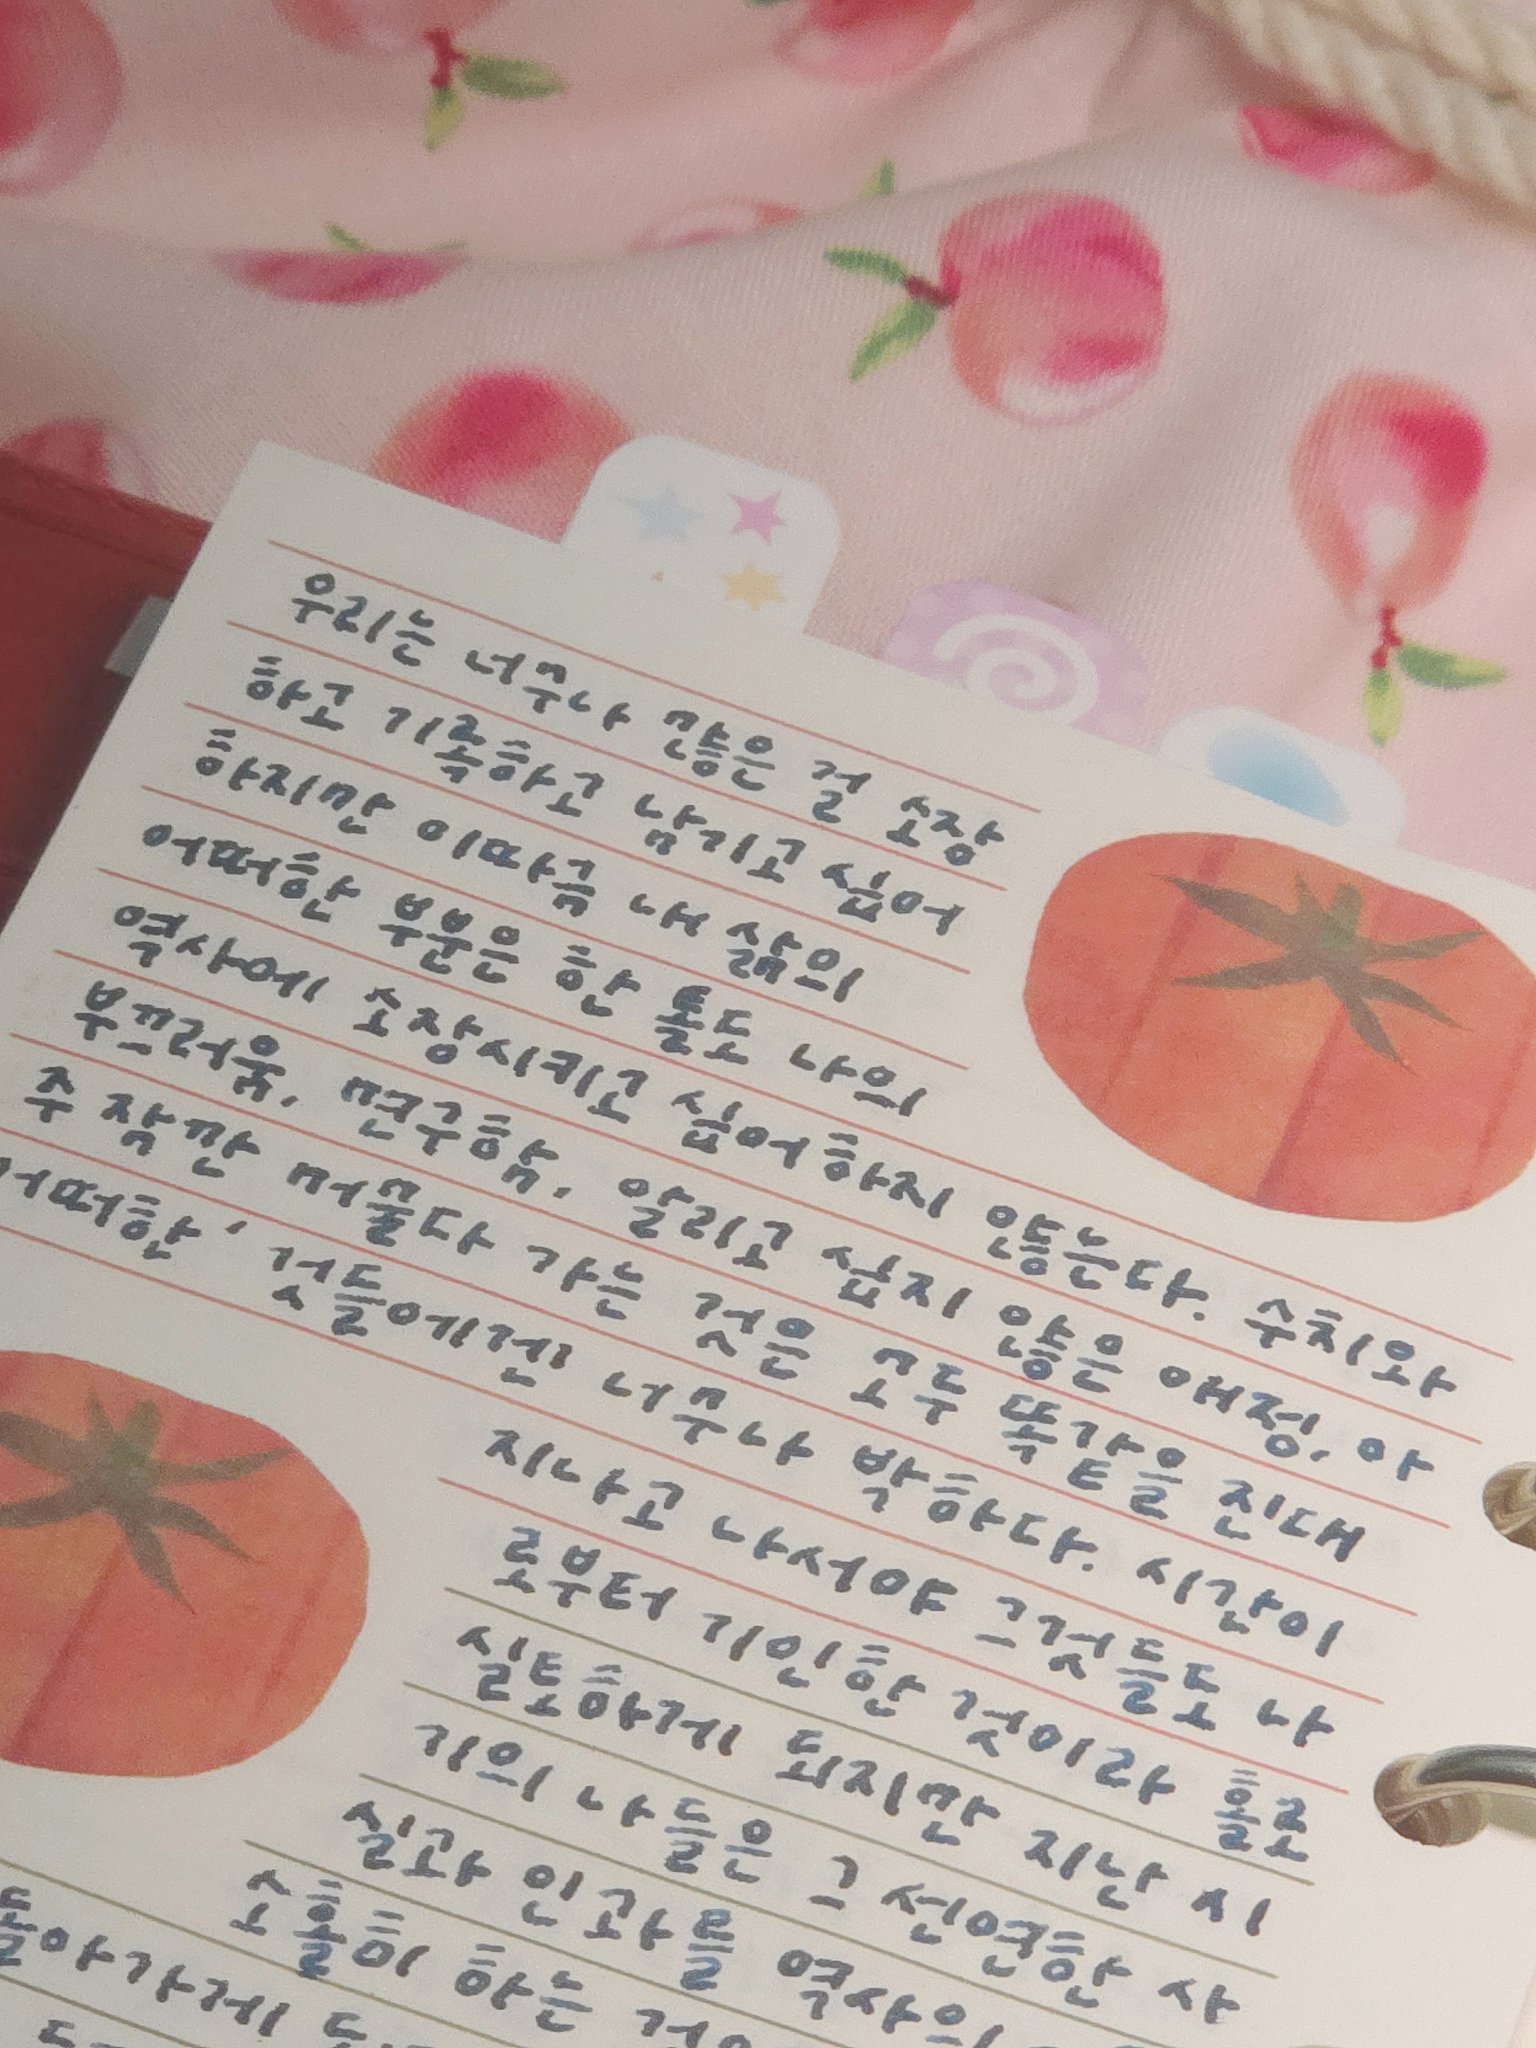 우리는 너무나 많은 걸 소장
하고 기록하고 남기고 싶어
하지만 이따금 내 삶의
어떠한 부분은 한 톨도 나의
역사에 소장시키고 싶어하지 않는다. 수치와
부끄러움, 면구함, 알리고 싶지 않은 여정, 아
주 잠깐 머물다 가는 것은 모두 똑같을 진대
어떠한 것들에겐 너무나 박하다. 시간이
지나고 나서야 그것들도 나
로부터 기인한 것이라 톨로
실토하게 되지만 지난 시
기의 나들은 그 선연한 사
실과 인과를 역사의
소홀히 하는
돌아가게